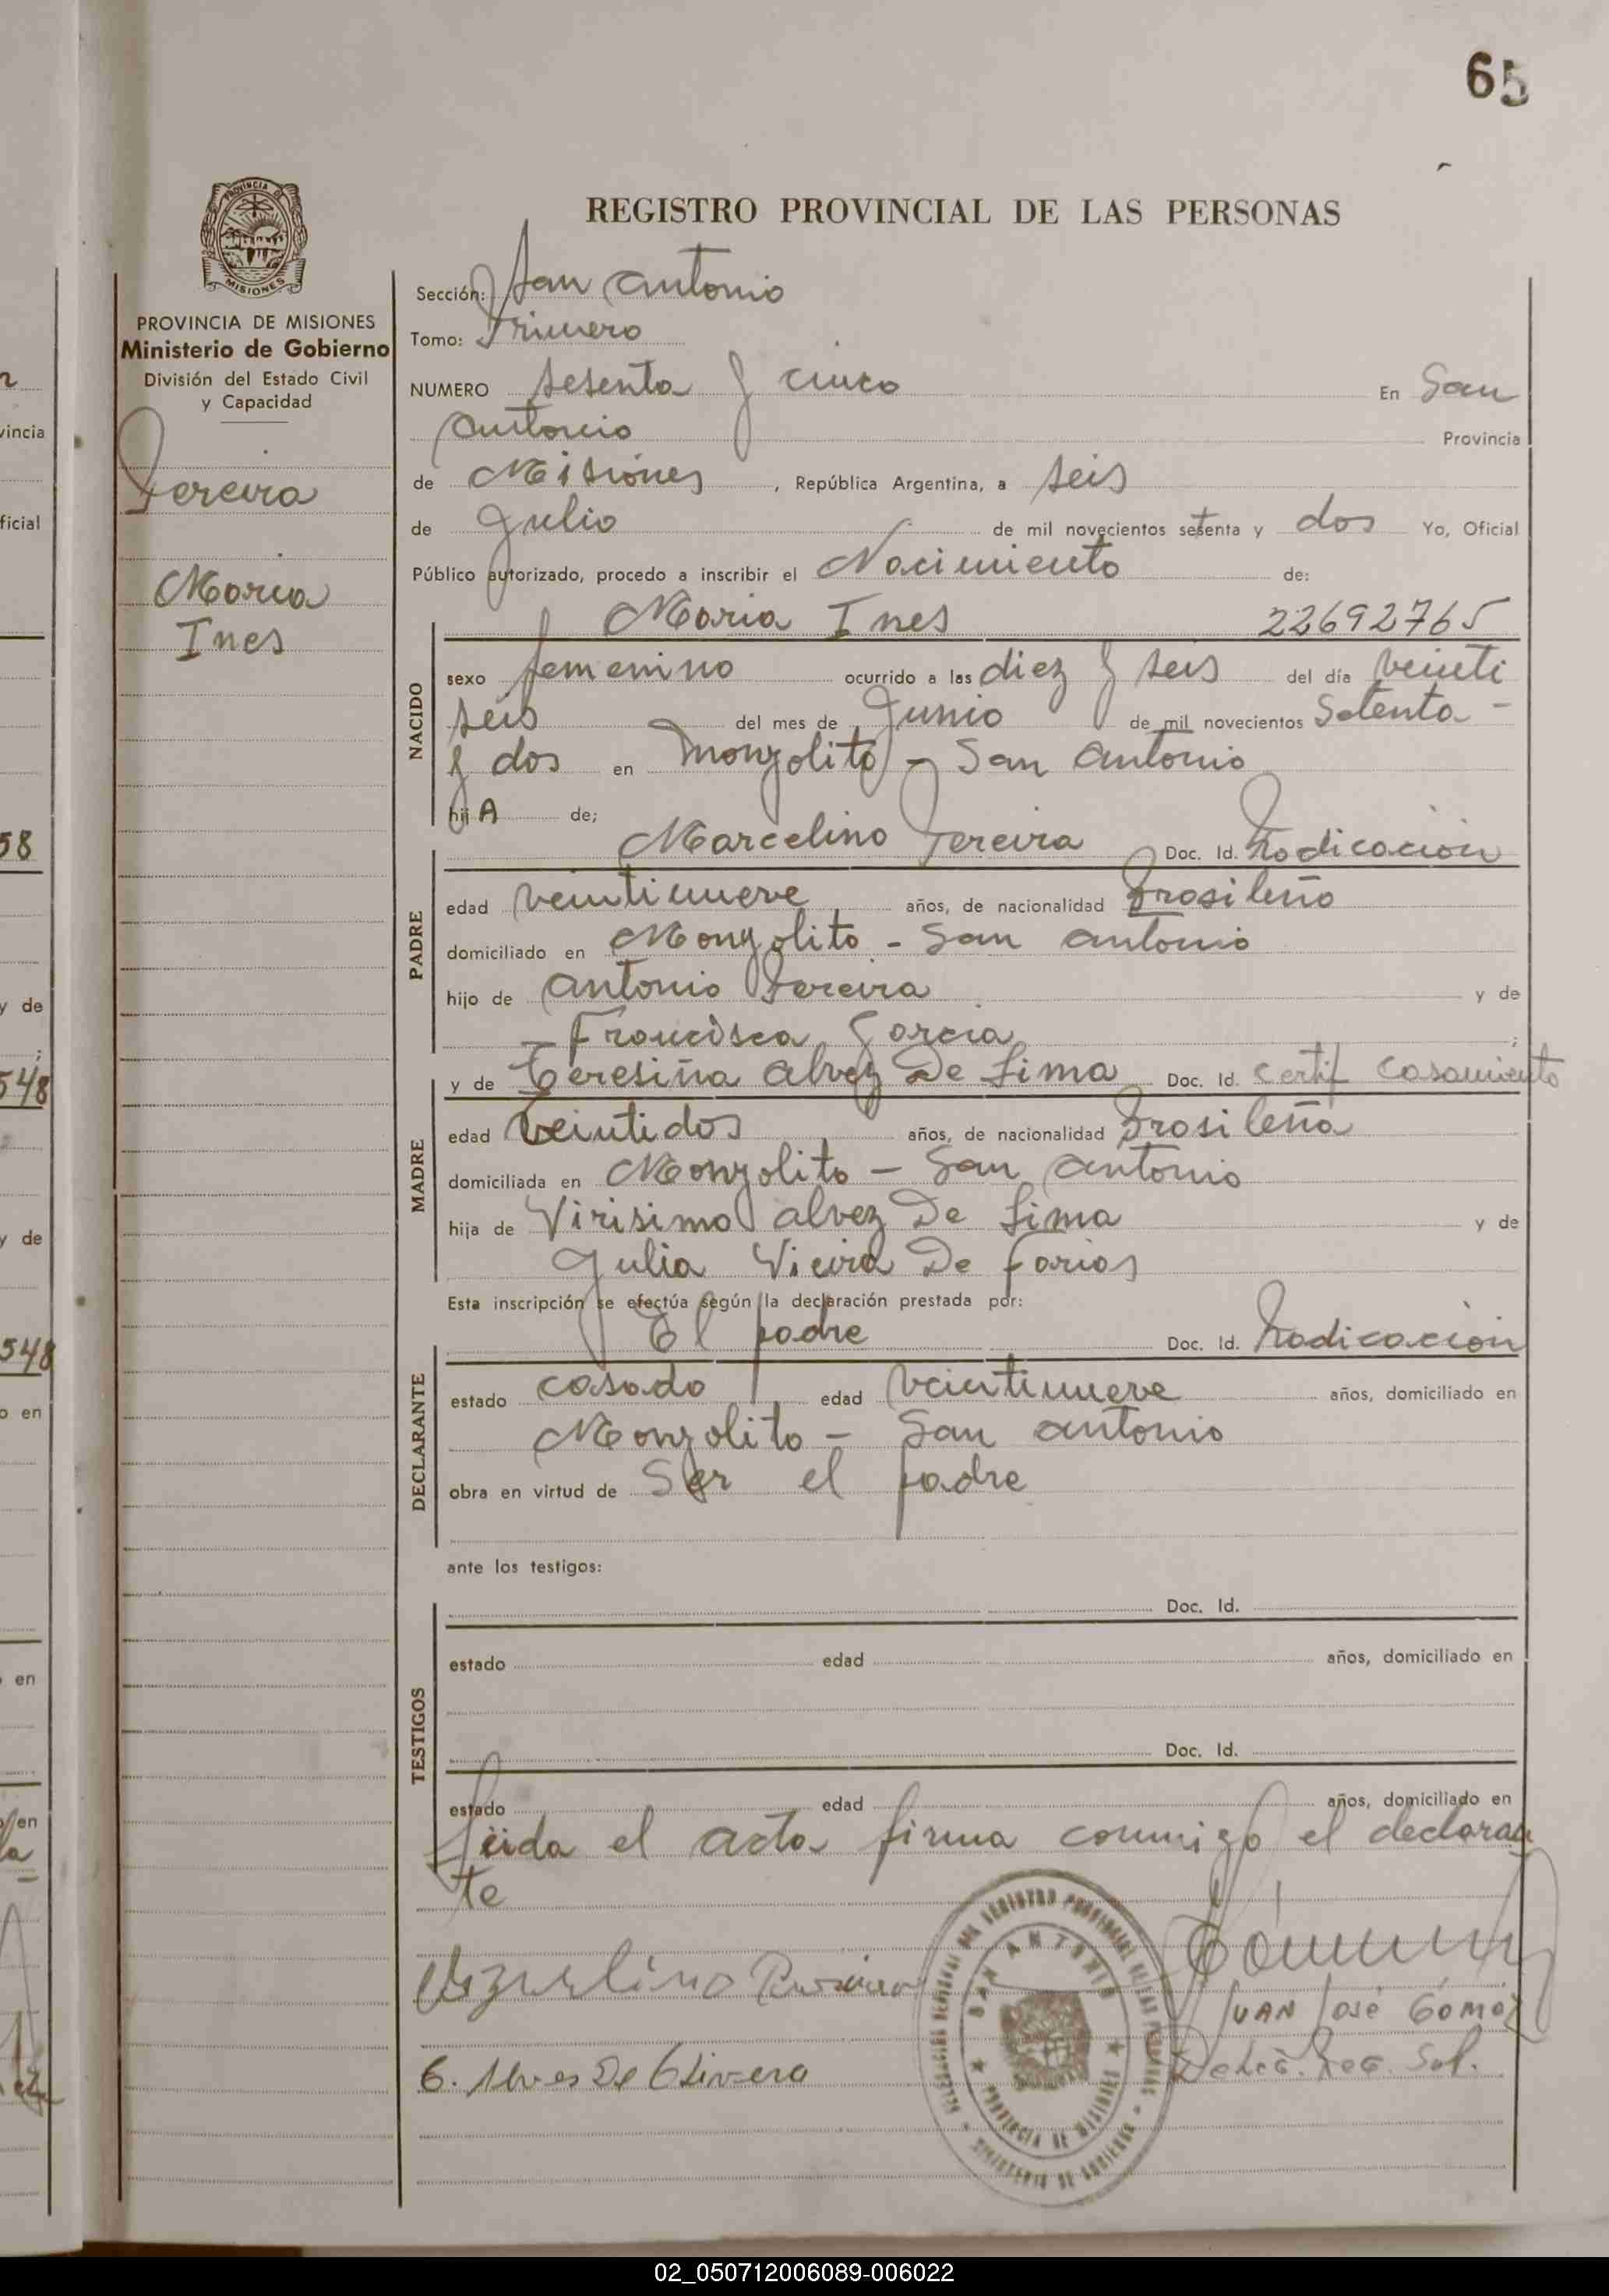 65
PROVINCIA DE MISIONES
REGISTRO PROVINCIAL DE LAS PERSONAS
PROVINCIA DE MISIONES
Ministerio de Gobierno
División del Estado Civil
y Capacidad
Pereira
Maria
Ines
Sección: San Antonio
Tomo: Primero
NUMERO sesenta y cinco En San
Antonio Provincia
de Misiones, República Argentina, a seis
de Julio de mil novecientos setenta y dos Yo, Oficial
Público autorizado, procedo a inscribir el Nacimiento de:
Maria Ines 22692765
NACIDO
sexo femenino ocurrido a las diez y seis del día veinti
seis del mes de Junio de mil novecientos Setenta -
y dos en Monzolito - San Antonio
hij A de;
Marcelino Pereira Doc. Id. Radicación
PADRE
edad veintinueve años, de nacionalidad Brasileño
domiciliado en Monzolito - San Antonio
hijo de Antonio Pereira y de
- Francisca Garcia ;
y de Teresiña Alvez De Lima Doc. Id. Certif Casamiento
MADRE
edad Veintidos años, de nacionalidad Brasileña
domiciliada en Monzolito - San Antonio
hija de Virisimo Alvez De Lima y de
Julia Vieira De Farias
Esta inscripción se efectúa según la declaración prestada por:
El padre Doc. Id. Radicación
DECLARANTE
estado casado edad Veintinueve años, domiciliado en
Monzolito - San Antonio
obra en virtud de Ser el padre
ante los testigos:
TESTIGOS
Doc. Id.
estado edad años, domiciliado en
Doc. Id.
estado edad años, domiciliado en
Leida el acta firma conmigo el declaran
te
SAN ANTONIO
PROVINCIA DE MISIONES
MINISTERIO DE GOBIERNO
JUAN José Gomez
02_050712006089-006022